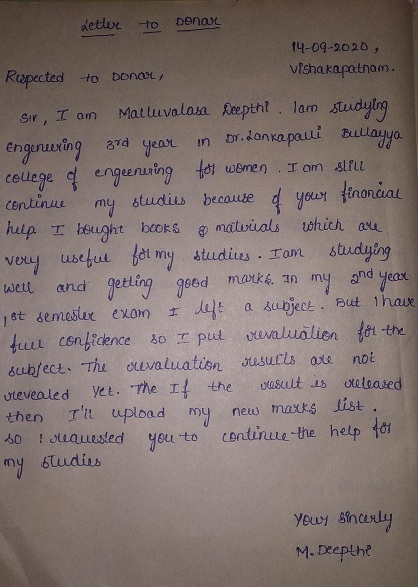 Letter to Donar
14-09-2020,
Vishakapatnam.
Respected to Donar,
Sir, I am Malluvalasa Deepthi. Iam studying
Engeneering 3rd year in Dr. Lankapalli Bullayya
college of engeenering for women. I am still
continue my studies because of your financial
help. I bought books & matirials which are
very useful for my studies. Iam studying
well and getting good marks. In my 2nd year
1st semester exam I left a subject. But I have
full confidence so I put revaluation for the
subject. The revaluation results are not
revealed yet. The If the result is released
then I'll upload my new marks list.
so I requested you to continue the help for
my studies
Your Sincerly
M. Deepthi